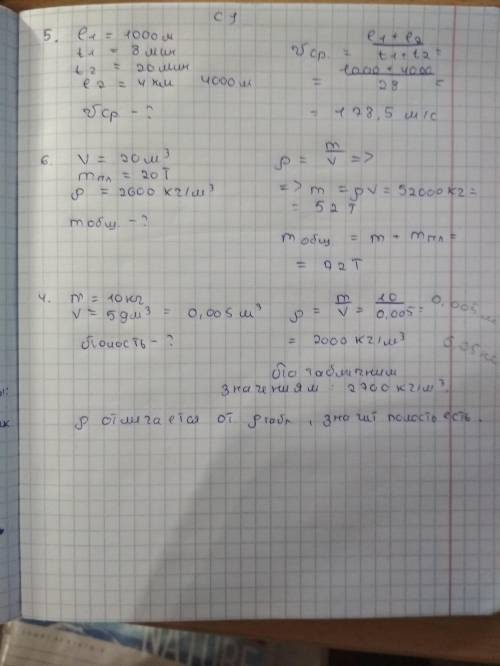 С 1
5. l1 = 1000 м
t1 = 8 мин
t2 = 20 мин
l2 = 4 км 4000 м
vср - ?
vср. = (l1 + l2)/(t1 + t2) =
= (1000 + 4000)/28 =
= 178,5 м/с
6. V = 20 м³
mпл = 20 т
ρ = 2600 кг/м³
mобщ. - ?
ρ = m/V =>
=> m = ρV = 52000 кг =
= 52 т
mобщ. = m + mпл =
= 72 т
4. m = 10 кг
V = 5 дм³ = 0,005 м³
Полость - ?
ρ = m/V = 10/0,005 =
= 2000 кг/м³
0,005 м
По табличным
значениям : 2700 кг/м³.
ρ отличается от ρтабл , значит полость есть.